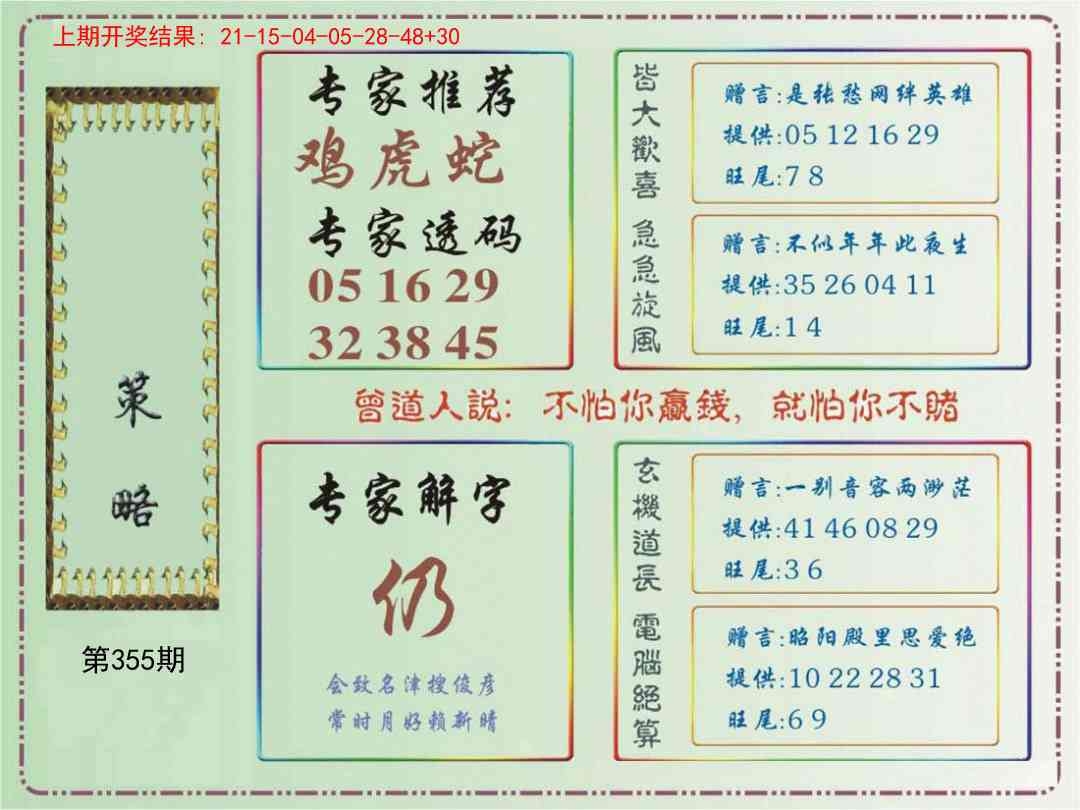 上期开奖结果: 21-15-04-05-28-48+30
策略
第355期
专家推荐
鸡虎蛇
专家透码
05 16 29
32 38 45
皆大歡喜
赠言:是张愁网绊英雄
提供:05 12 16 29
旺尾:7 8
急急旋風
赠言:不似年年此夜生
提供:35 26 04 11
旺尾:1 4
曾道人説: 不怕你贏錢, 就怕你不賭
专家解字
仍
会致名津搜俊彦
常时月好赖新晴
玄機道長
赠言:一别音容两渺茫
提供:41 46 08 29
旺尾:3 6
電腦絕算
赠言:昭阳殿里思爱绝
提供:10 22 28 31
旺尾:6 9